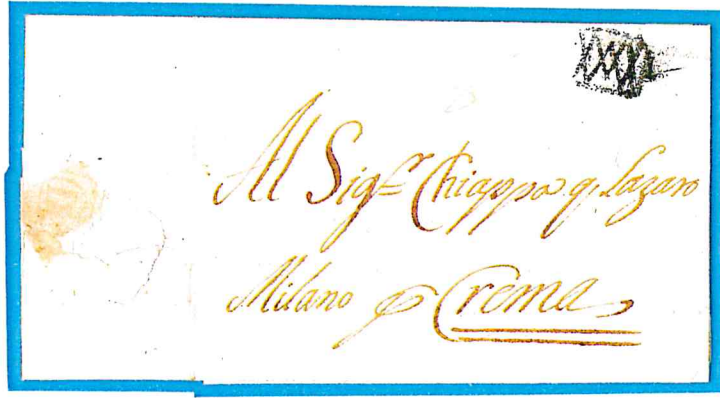 Al Sig.r Chiappa q. Lazaro
Milano p Crema